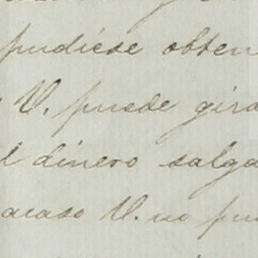 pudiese obten
V. puede gira
l dinero salga
acaso V. no pu